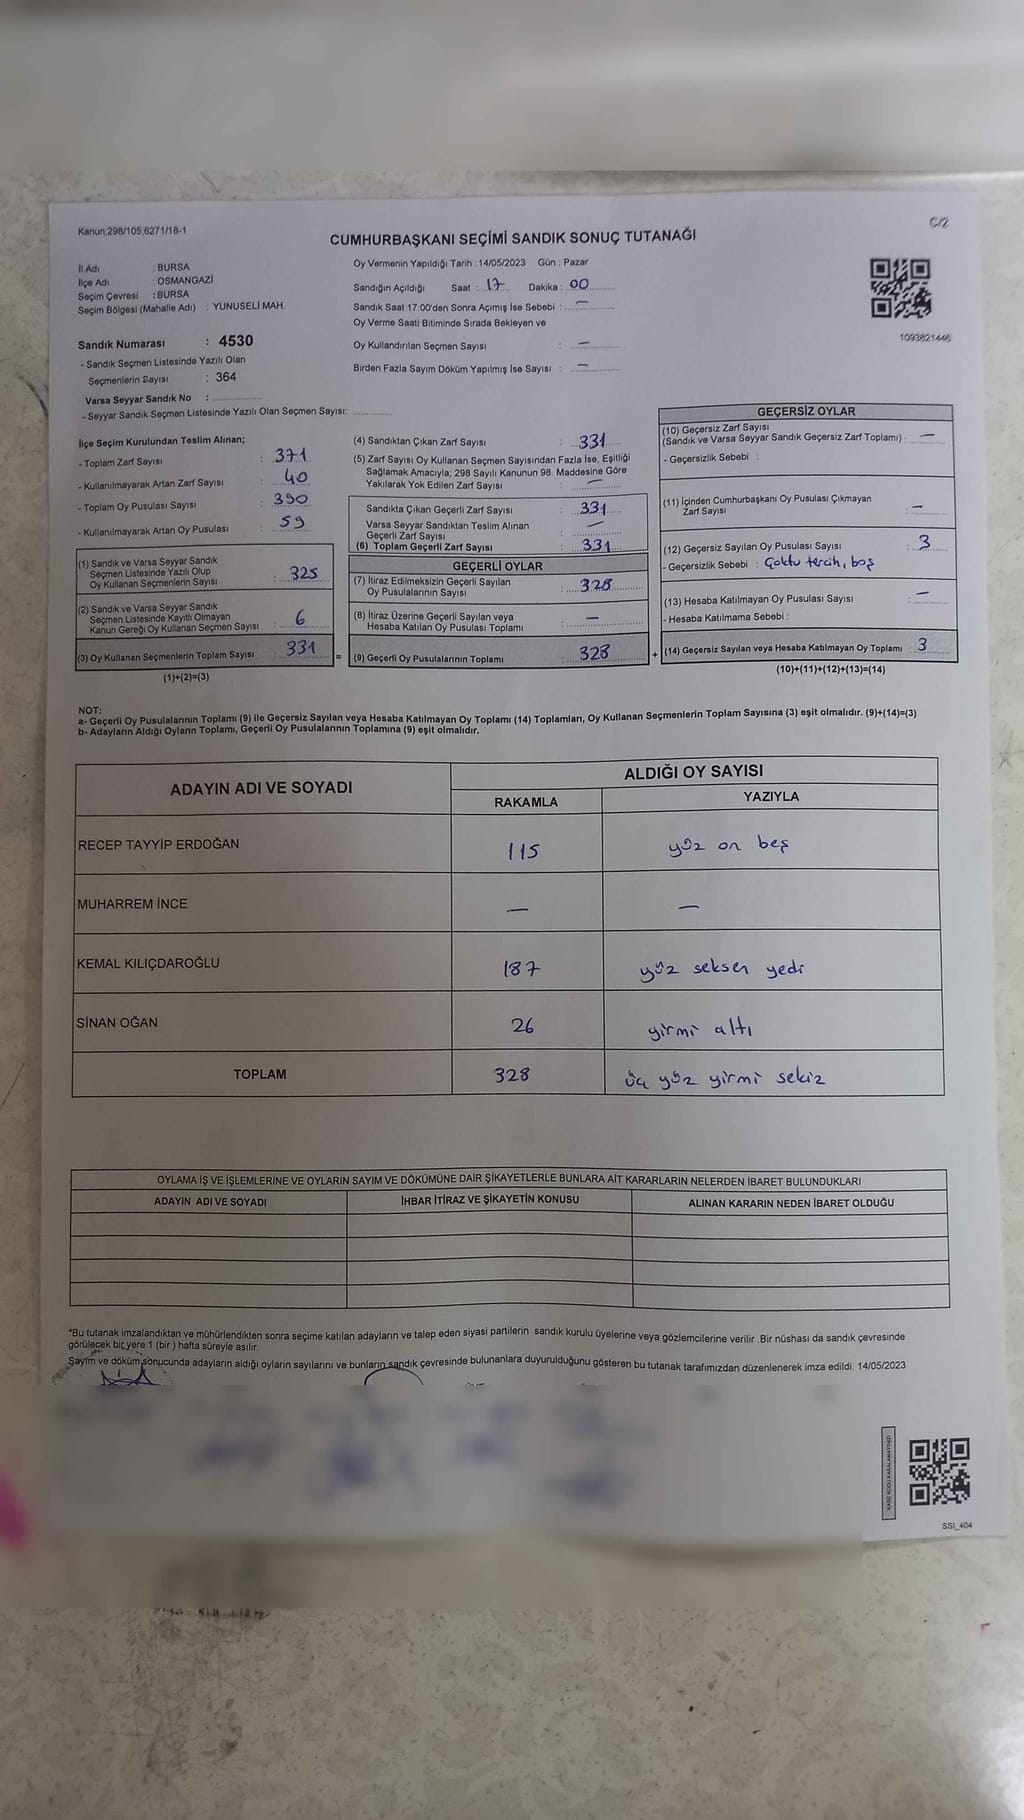 Kanun;298/105;6271/18-1
C/2
CUMHURBAŞKANI SEÇİMİ SANDIK SONUÇ TUTANAĞI
İl Adı : BURSA
İlçe Adı : OSMANGAZİ
Seçim Çevresi : BURSA
Seçim Bölgesi (Mahalle Adı) : YUNUSELİ MAH.
Sandık Numarası : 4530
- Sandık Seçmen Listesinde Yazılı Olan
Seçmenlerin Sayısı : 364
Varsa Seyyar Sandık No :
- Seyyar Sandık Seçmen Listesinde Yazılı Olan Seçmen Sayısı:
Oy Vermenin Yapıldığı Tarih : 14/05/2023 Gün : Pazar
Sandığın Açıldığı Saat : 17 Dakika : 00
Sandık Saat 17.00'den Sonra Açımış İse Sebebi : —
Oy Verme Saati Bitiminde Sırada Bekleyen ve
Oy Kullandırılan Seçmen Sayısı : —
Birden Fazla Sayım Döküm Yapılmış İse Sayısı : —
1093821446
İlçe Seçim Kurulundan Teslim Alınan;
- Toplam Zarf Sayısı : 371
- Kullanılmayarak Artan Zarf Sayısı : 40
- Toplam Oy Pusulası Sayısı : 390
- Kullanılmayarak Artan Oy Pusulası : 59
(1) Sandık ve Varsa Seyyar Sandık
Seçmen Listesinde Yazılı Olup
Oy Kullanan Seçmenlerin Sayısı : 325
(2) Sandık ve Varsa Seyyar Sandık
Seçmen Listesinde Kayıtlı Olmayan
Kanun Gereği Oy Kullanan Seçmen Sayısı : 6
(3) Oy Kullanan Seçmenlerin Toplam Sayısı : 331
(1)+(2)=(3)
(4) Sandıktan Çıkan Zarf Sayısı : 331
(5) Zarf Sayısı Oy Kullanan Seçmen Sayısından Fazla İse, Eşitliği
Sağlamak Amacıyla, 298 Sayılı Kanunun 98. Maddesine Göre
Yakılarak Yok Edilen Zarf Sayısı : —
Sandıkta Çıkan Geçerli Zarf Sayısı : 331
Varsa Seyyar Sandıktan Teslim Alınan
Geçerli Zarf Sayısı : —
(6) Toplam Geçerli Zarf Sayısı : 331
GEÇERLİ OYLAR
(7) İtiraz Edilmeksizin Geçerli Sayılan
Oy Pusulalarının Sayısı : 328
(8) İtiraz Üzerine Geçerli Sayılan veya
Hesaba Katılan Oy Pusulası Toplamı : —
= (9) Geçerli Oy Pusulalarının Toplamı : 328
GEÇERSİZ OYLAR
(10) Geçersiz Zarf Sayısı
(Sandık ve Varsa Seyyar Sandık Geçersiz Zarf Toplamı) : —
- Geçersizlik Sebebi :
(11) İçinden Cumhurbaşkanı Oy Pusulası Çıkmayan
Zarf Sayısı : —
(12) Geçersiz Sayılan Oy Pusulası Sayısı : 3
- Geçersizlik Sebebi : Çoklu tercih, boş
(13) Hesaba Katılmayan Oy Pusulası Sayısı : —
- Hesaba Katılmama Sebebi :
+ (14) Geçersiz Sayılan veya Hesaba Katılmayan Oy Toplamı : 3
(10)+(11)+(12)+(13)=(14)
NOT:
a- Geçerli Oy Pusulalarının Toplamı (9) ile Geçersiz Sayılan veya Hesaba Katılmayan Oy Toplamı (14) Toplamları, Oy Kullanan Seçmenlerin Toplam Sayısına (3) eşit olmalıdır. (9)+(14)=(3)
b- Adayların Aldığı Oyların Toplamı, Geçerli Oy Pusulalarının Toplamına (9) eşit olmalıdır.
ADAYIN ADI VE SOYADI ALDIĞI OY SAYISI
RAKAMLA YAZIYLA
RECEP TAYYİP ERDOĞAN 115 yüz on beş
MUHARREM İNCE — —
KEMAL KILIÇDAROĞLU 187 yüz seksen yedi
SİNAN OĞAN 26 yirmi altı
TOPLAM 328 üç yüz yirmi sekiz
OYLAMA İŞ VE İŞLEMLERİNE VE OYLARIN SAYIM VE DÖKÜMÜNE DAİR ŞİKAYETLERLE BUNLARA AİT KARARLARIN NELERDEN İBARET BULUNDUKLARI
ADAYIN ADI VE SOYADI İHBAR İTİRAZ VE ŞİKAYETİN KONUSU ALINAN KARARIN NEDEN İBARET OLDUĞU
*Bu tutanak imzalandıktan ve mühürlendikten sonra seçime katılan adayların ve talep eden siyasi partilerin sandık kurulu üyelerine veya gözlemcilerine verilir .Bir nüshası da sandık çevresinde
görülecek bir yere 1 (bir ) hafta süreyle asılır.
Sayım ve döküm sonucunda adayların aldığı oyların sayılarını ve bunların sandık çevresinde bulunanlara duyurulduğunu gösteren bu tutanak tarafımızdan düzenlenerek imza edildi. 14/05/2023
KARE KODU KARALAMAYINIZ!
SSI_404